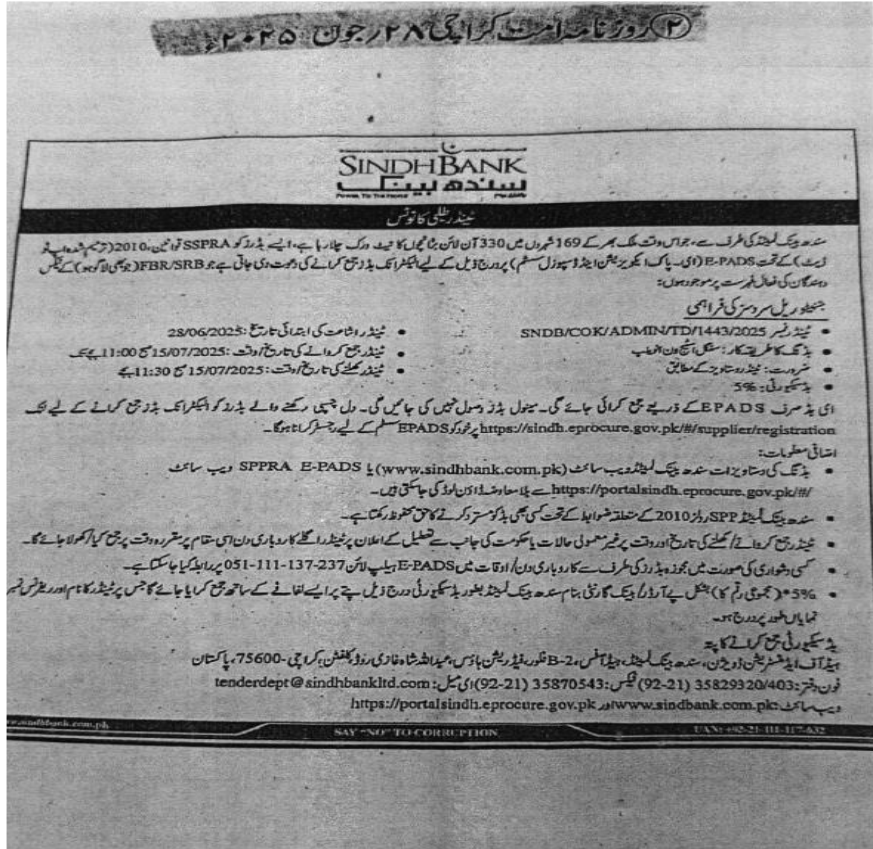 ② روزنامہ امت کراچی ۲۸ رجون ۲۰۲۵ء
SINDHBANK
سندھ بینک
POWER TO THE PEOPLE
ٹینڈر طلبی کا نوٹس
سندھ بینک لمیٹڈ کی طرف سے، جو اس وقت ملک بھر کے 169 شہروں میں 330 آن لائن برانچوں کا نیٹ ورک چلا رہا ہے، ایسے بڈرز کو SSPRA قوانین، 2010 (ترمیم شدہ اپ ٹو
ڈیٹ) کے تحت E-PADS (ای۔ پاک ایکویزیشن اینڈ ڈسپوزل سسٹم) پر درج ذیل کے لیے الیکٹرانک بڈز جمع کرانے کی دعوت دی جاتی ہے جو FBR/SRB (جو بھی لاگو ہو) کے ٹیکس
دہندگان کی فعال فہرست پر موجود ہوں:
جینیٹوریل سروسز کی فراہمی
• ٹینڈر نمبر SNDB/COK/ADMIN/TD/1443/2025
• ٹینڈر اشاعت کی ابتدائی تاریخ: 28/06/2025
• بڈنگ کا طریقہ کار: سنگل اسٹیج ون انولپ
• ٹینڈر جمع کروانے کی تاریخ/وقت: 15/07/2025 صبح 11:00 بجے تک
• ضرورت: ٹینڈر دستاویز کے مطابق
• ٹینڈر کھلنے کی تاریخ/وقت: 15/07/2025 صبح 11:30 بجے
• بڈ سکیورٹی: 5%
ای بڈ صرف EPADS کے ذریعے جمع کرائی جائے گی۔ مینول بڈز وصول نہیں کی جائیں گی۔ دل چسپی رکھنے والے بڈرز کو الیکٹرانک بڈز جمع کرانے کے لیے لنک
https://sindh.eprocure.gov.pk/#/supplier/registration پر خود کو EPADS سسٹم کے لیے رجسٹر کرانا ہوگا۔
اضافی معلومات:
• بڈنگ کی دستاویزات سندھ بینک لمیٹڈ ویب سائٹ (www.sindhbank.com.pk) یا SPPRA E-PADS ویب سائٹ
https://portalsindh.eprocure.gov.pk/#/ سے بلا معاوضہ ڈاؤن لوڈ کی جاسکتی ہیں۔
• سندھ بینک لمیٹڈ SPP رولز 2010 کے متعلقہ ضوابط کے تحت کسی بھی بڈ کو مسترد کرنے کا حق محفوظ رکھتا ہے۔
• ٹینڈر جمع کروانے/کھلنے کی تاریخ اور وقت پر غیر معمولی حالات یا حکومت کی جانب سے تعطیل کے اعلان پر ٹینڈر اگلے کاروباری دن اسی مقام پر مقررہ وقت پر جمع کیا/کھولا جائے گا۔
• کسی دشواری کی صورت میں مجوزہ بڈرز کی طرف سے کاروباری دن/اوقات میں E-PADS ہیلپ لائن 051-111-137-237 پر رابطہ کیا جاسکتا ہے۔
• 5%* (مجموعی رقم کا) بشکل پے آرڈر/بینک گارنٹی بنام سندھ بینک لمیٹڈ بطور بڈ سیکیورٹی درج ذیل پتے پر ایسے لفافے کے ساتھ جمع کرایا جائے گا جس پر ٹینڈر کا نام اور ریفرنس نمبر
نمایاں طور پر درج ہو۔
بڈ سیکیورٹی جمع کرانے کا پتہ
ہیڈ آف ایڈمنسٹریشن ڈویژن، سندھ بینک لمیٹڈ، ہیڈ آفس، B-2 فلور، فیڈریشن ہاؤس، عبداللہ شاہ غازی روڈ، کلفٹن، کراچی-75600، پاکستان
فون دفتر: 35829320/403 (92-21) فیکس: 35870543 (92-21) ای میل: tenderdept@sindhbankltd.com
ویب سائٹ: www.sindbank.com.pk اور https://portalsindh.eprocure.gov.pk
www.sindhbank.com.pk
SAY "NO" TO CORRUPTION
UAN: +92-21-111-117-632